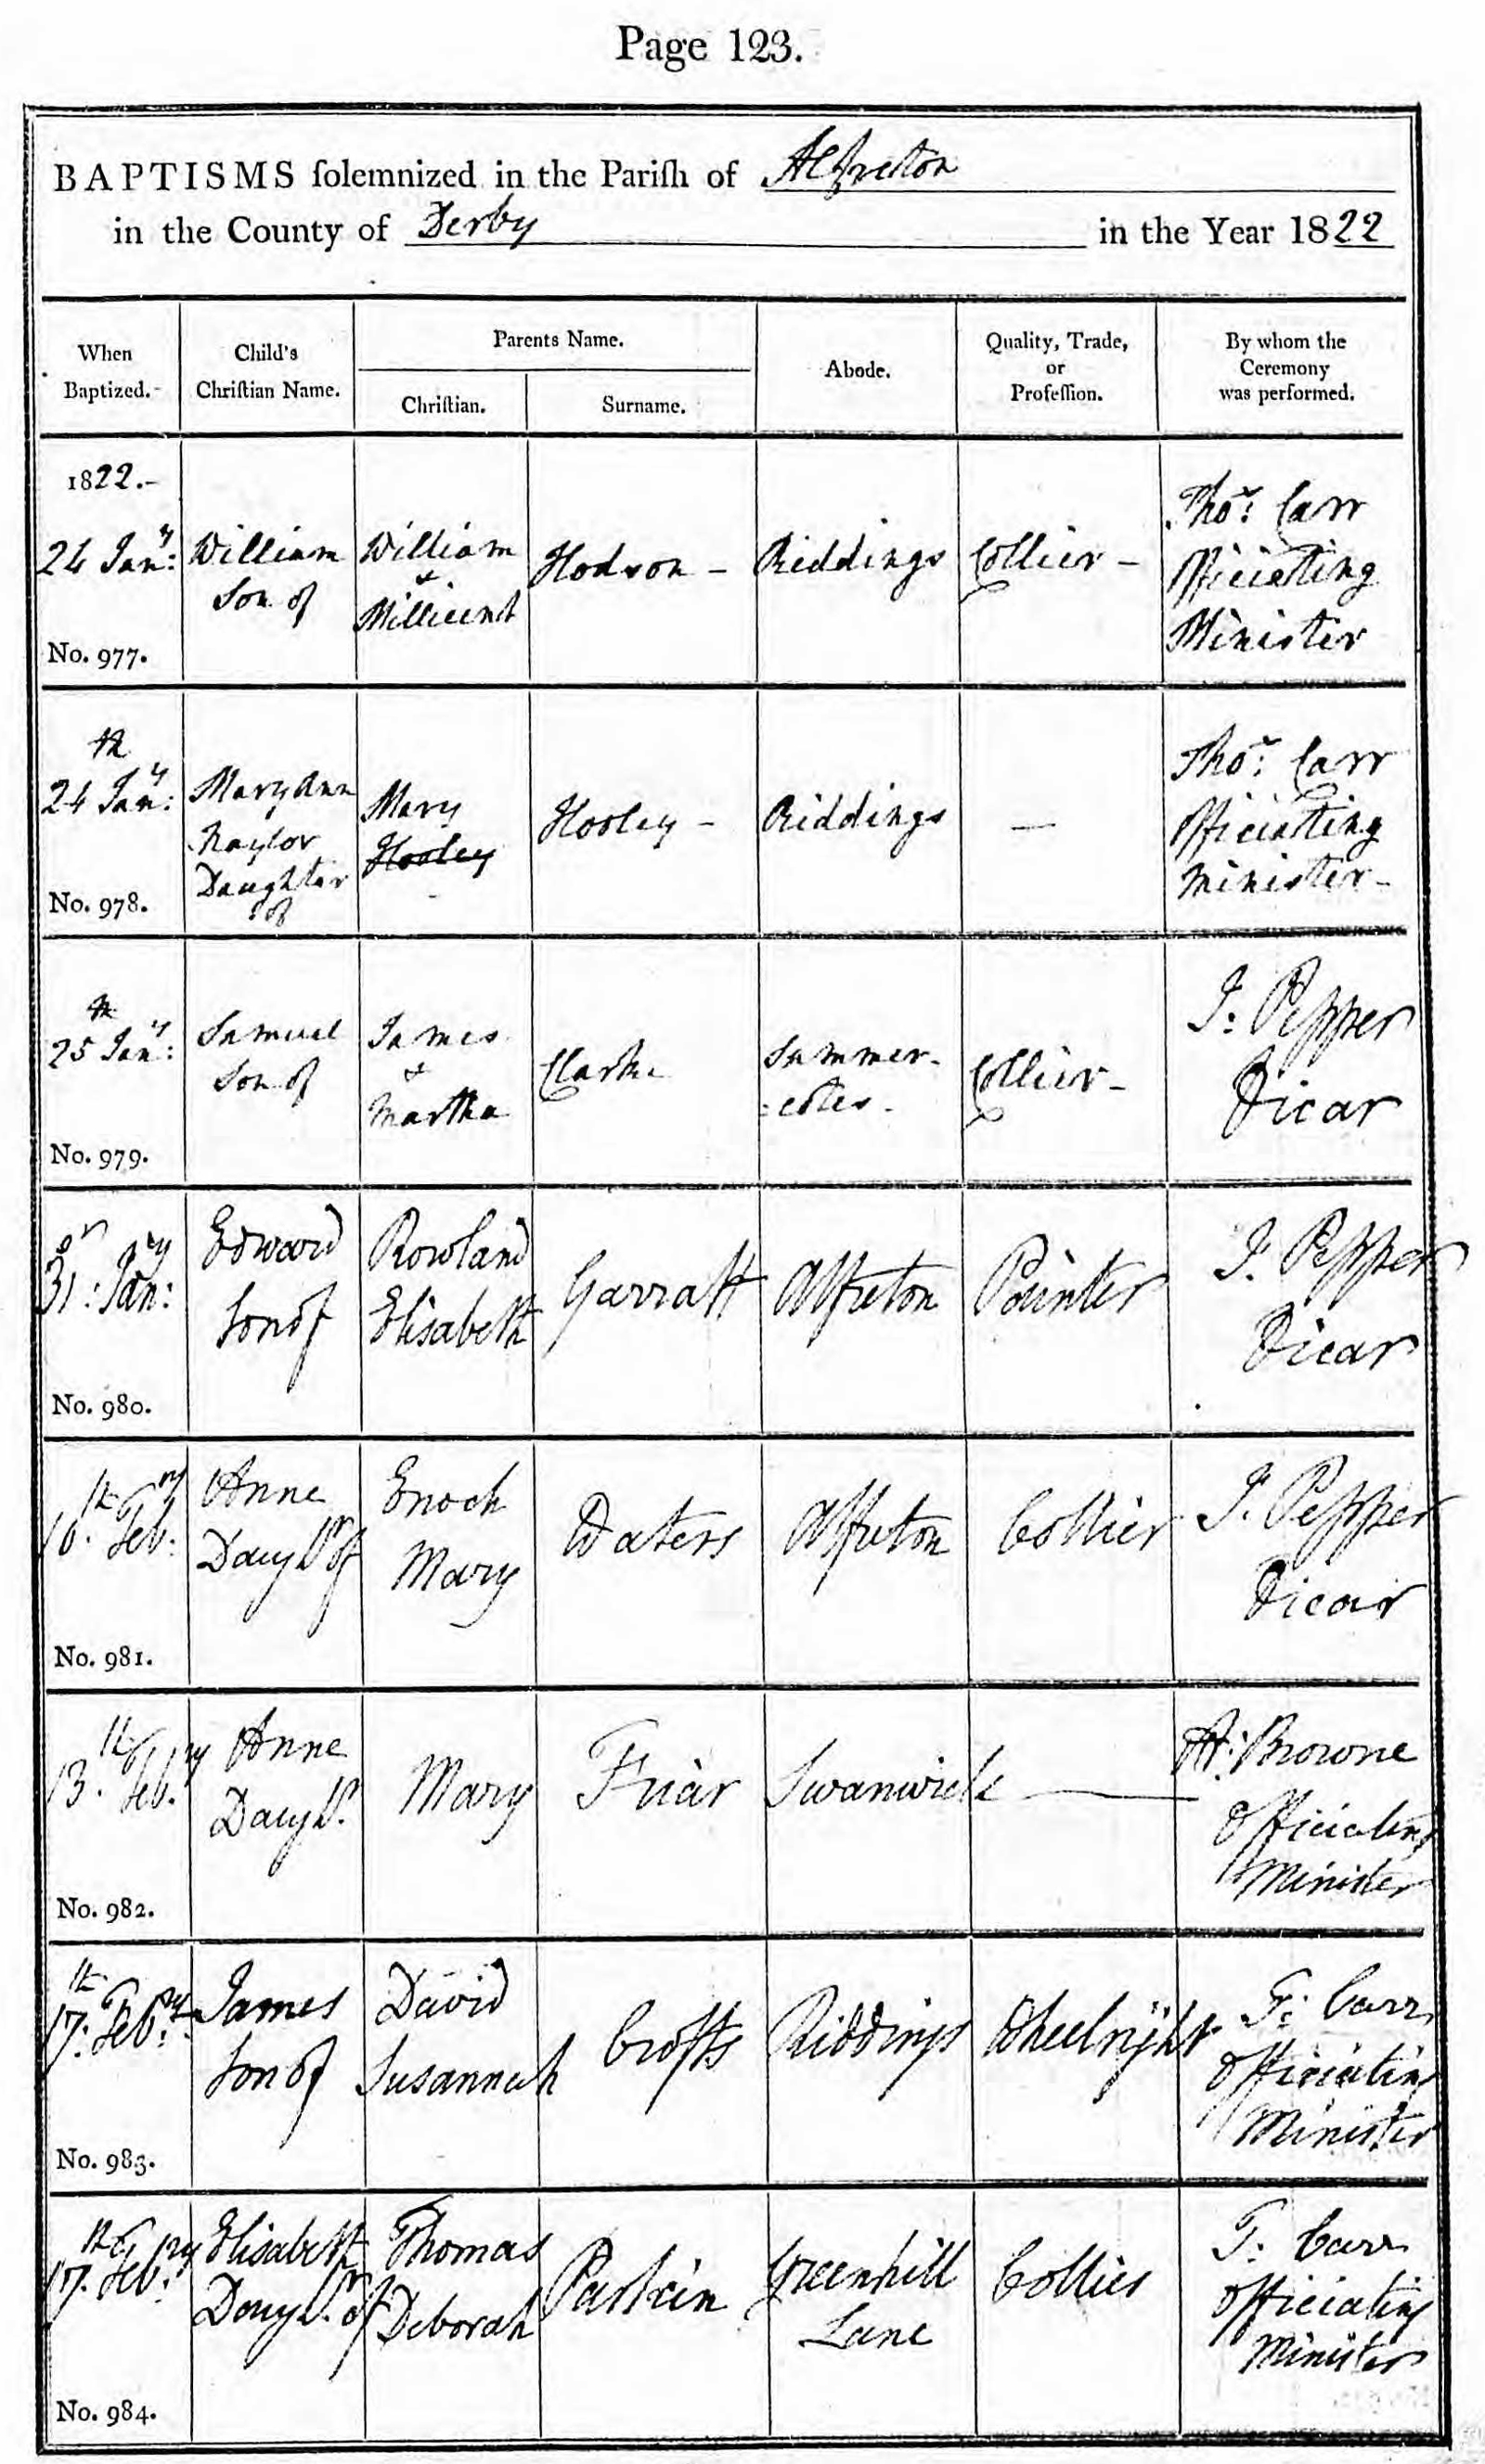 Page 123.
BAPTISMS solemnized in the Parish of Alfreton
in the County of Derby in the Year 1822
When
Baptized.
Child's
Christian Name.
Parents Name.
Christian.
Surname.
Abode.
Quality, Trade,
or
Profession.
By whom the
Ceremony
was performed.
1822.-
24 Jany:
No. 977.
William
Son of
William
&
Millicent
Hodson -
Riddings
Collier -
Thos: Carr
Officiating
Minister
th
24 Jany:
No. 978.
Mary Ann
Naylor
Daughter
of
Mary
Hooley
Hooley -
Riddings
—
Thos: Carr
Officiating
Minister -
th
25 Jany:
No. 979.
Samuel
Son of
James
&
Martha
Clarke
Summer-
=cotes -
Collier -
J: Pepper
Vicar
31: Jan:
No. 980.
Edward
Son of
Rowland
Elisabeth
Garratt
Alfreton
Painter
J: Pepper
Vicar
10th: Feb:ry
No. 981.
Anne
Daughtr of
Enoch
Mary
Waters
Alfreton
Collier
J: Pepper
Vicar
13th. Feb.ry
No. 982.
Anne
Daught.
Mary
Friar
Swanwick
—
Browne
Officiating
Minister
17th: Feb:ry
No. 983.
James
Son of
David
Susannah
Crofts
Riddings
Wheelright
T: Carr
Officiating
Minister
17th: Feb:ry
No. 984.
Elisabeth
Daught. of
Thomas
Deborah
Parkin
Greenhill
Lane
Collier
T: Carr
Officiating
Minister